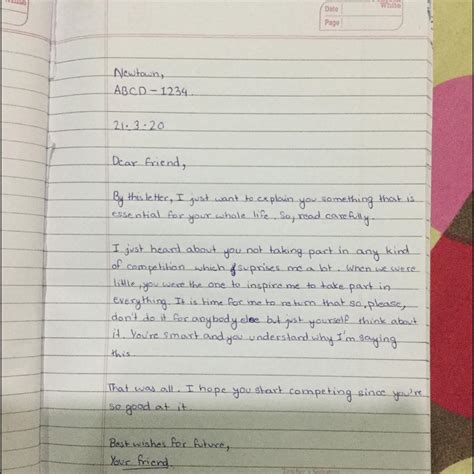 White
White
Date
Page
Newtown,
ABCD - 1234.
21.3.20
Dear friend,
By this letter, I just want to explain you something that is
essential for your whole life. So, read carefully.
I just heard about you not taking part in any kind
of competition which suprises me a lot. When we were
little, you were the one to inspire me to take part in
everything. It is time for me to return that so, please,
don't do it for anybody else but just yourself think about
it. You're smart and you understand why I'm saying
this.
That was all. I hope you start competing since you're
so good at it
Best wishes for future,
Your friend.